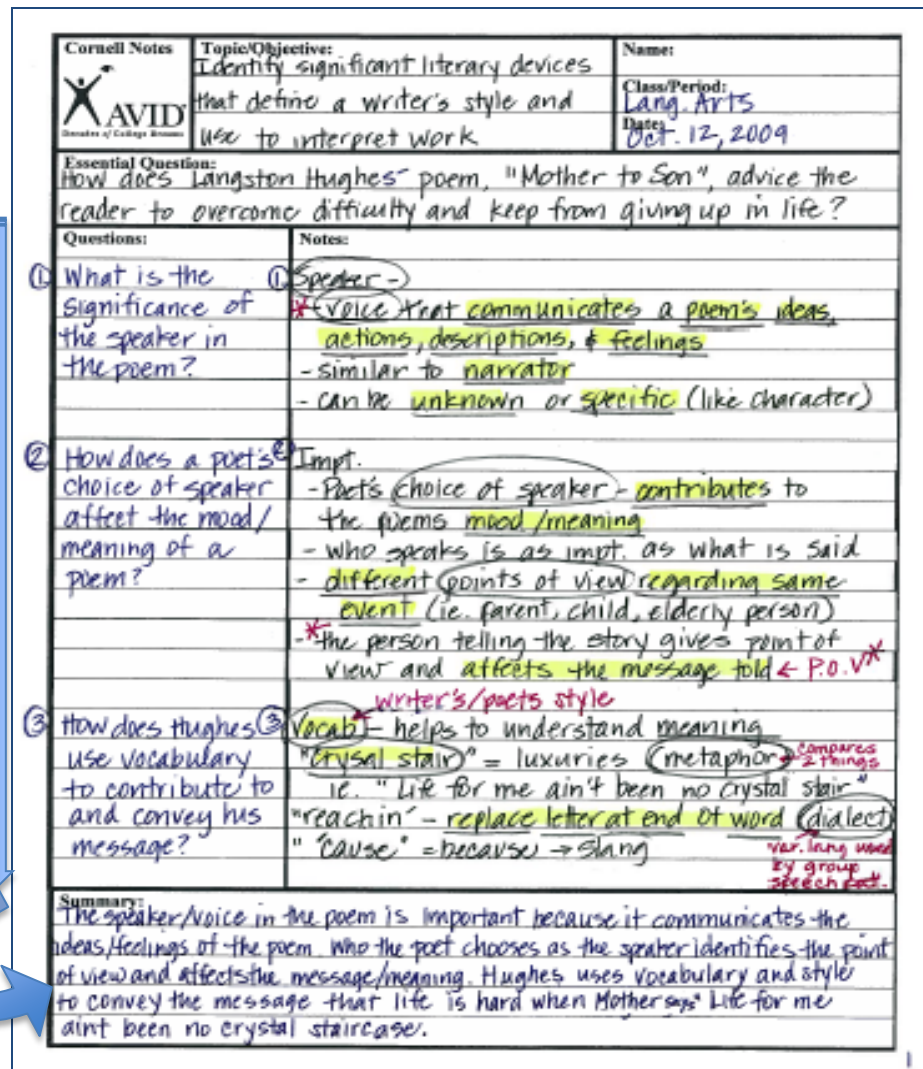 Cornell Notes
AVID
Decades of College Dreams
Topic/Objective:
Identify significant literary devices
that define a writer's style and
use to interpret work
Name:
Class/Period:
Lang. Arts
Date:
Oct. 12, 2009
Essential Question:
How does Langston Hughes' poem, "Mother to Son", advice the
reader to overcome difficulty and keep from giving up in life?
Questions:
① What is the
significance of
the speaker in
the poem?
② How does a poet's
choice of speaker
affect the mood/
meaning of a
poem?
③ How does Hughes
use vocabulary
to contribute to
and convey his
message?
Notes:
① Speaker -
* voice that communicates a poem's ideas,
actions, descriptions, & feelings
- similar to narrator
- can be unknown or specific (like character)
② Impt.
- Poet's choice of speaker - contributes to
the poems mood/meaning
- who speaks is as impt. as what is said
- different points of view regarding same
event (ie. parent, child, elderly person)
- * the person telling the story gives point of
view and affects the message told ← P.O.V *
writer's/poets style
③ Vocab - helps to understand meaning
"crysal stair" = luxuries (metaphor) compares
2 things
ie. "Life for me ain't been no crystal stair"
"reachin' - replace letter at end of word (dialect)
" 'cause" = because → slang
var. lang used
by group
speech pat.
Summary:
The speaker/voice in the poem is important because it communicates the
ideas/feelings of the poem. Who the poet chooses as the speaker identifies the point
of view and affects the message/meaning. Hughes uses vocabulary and style
to convey the message that life is hard when Mother says" Life for me
aint been no crystal staircase.